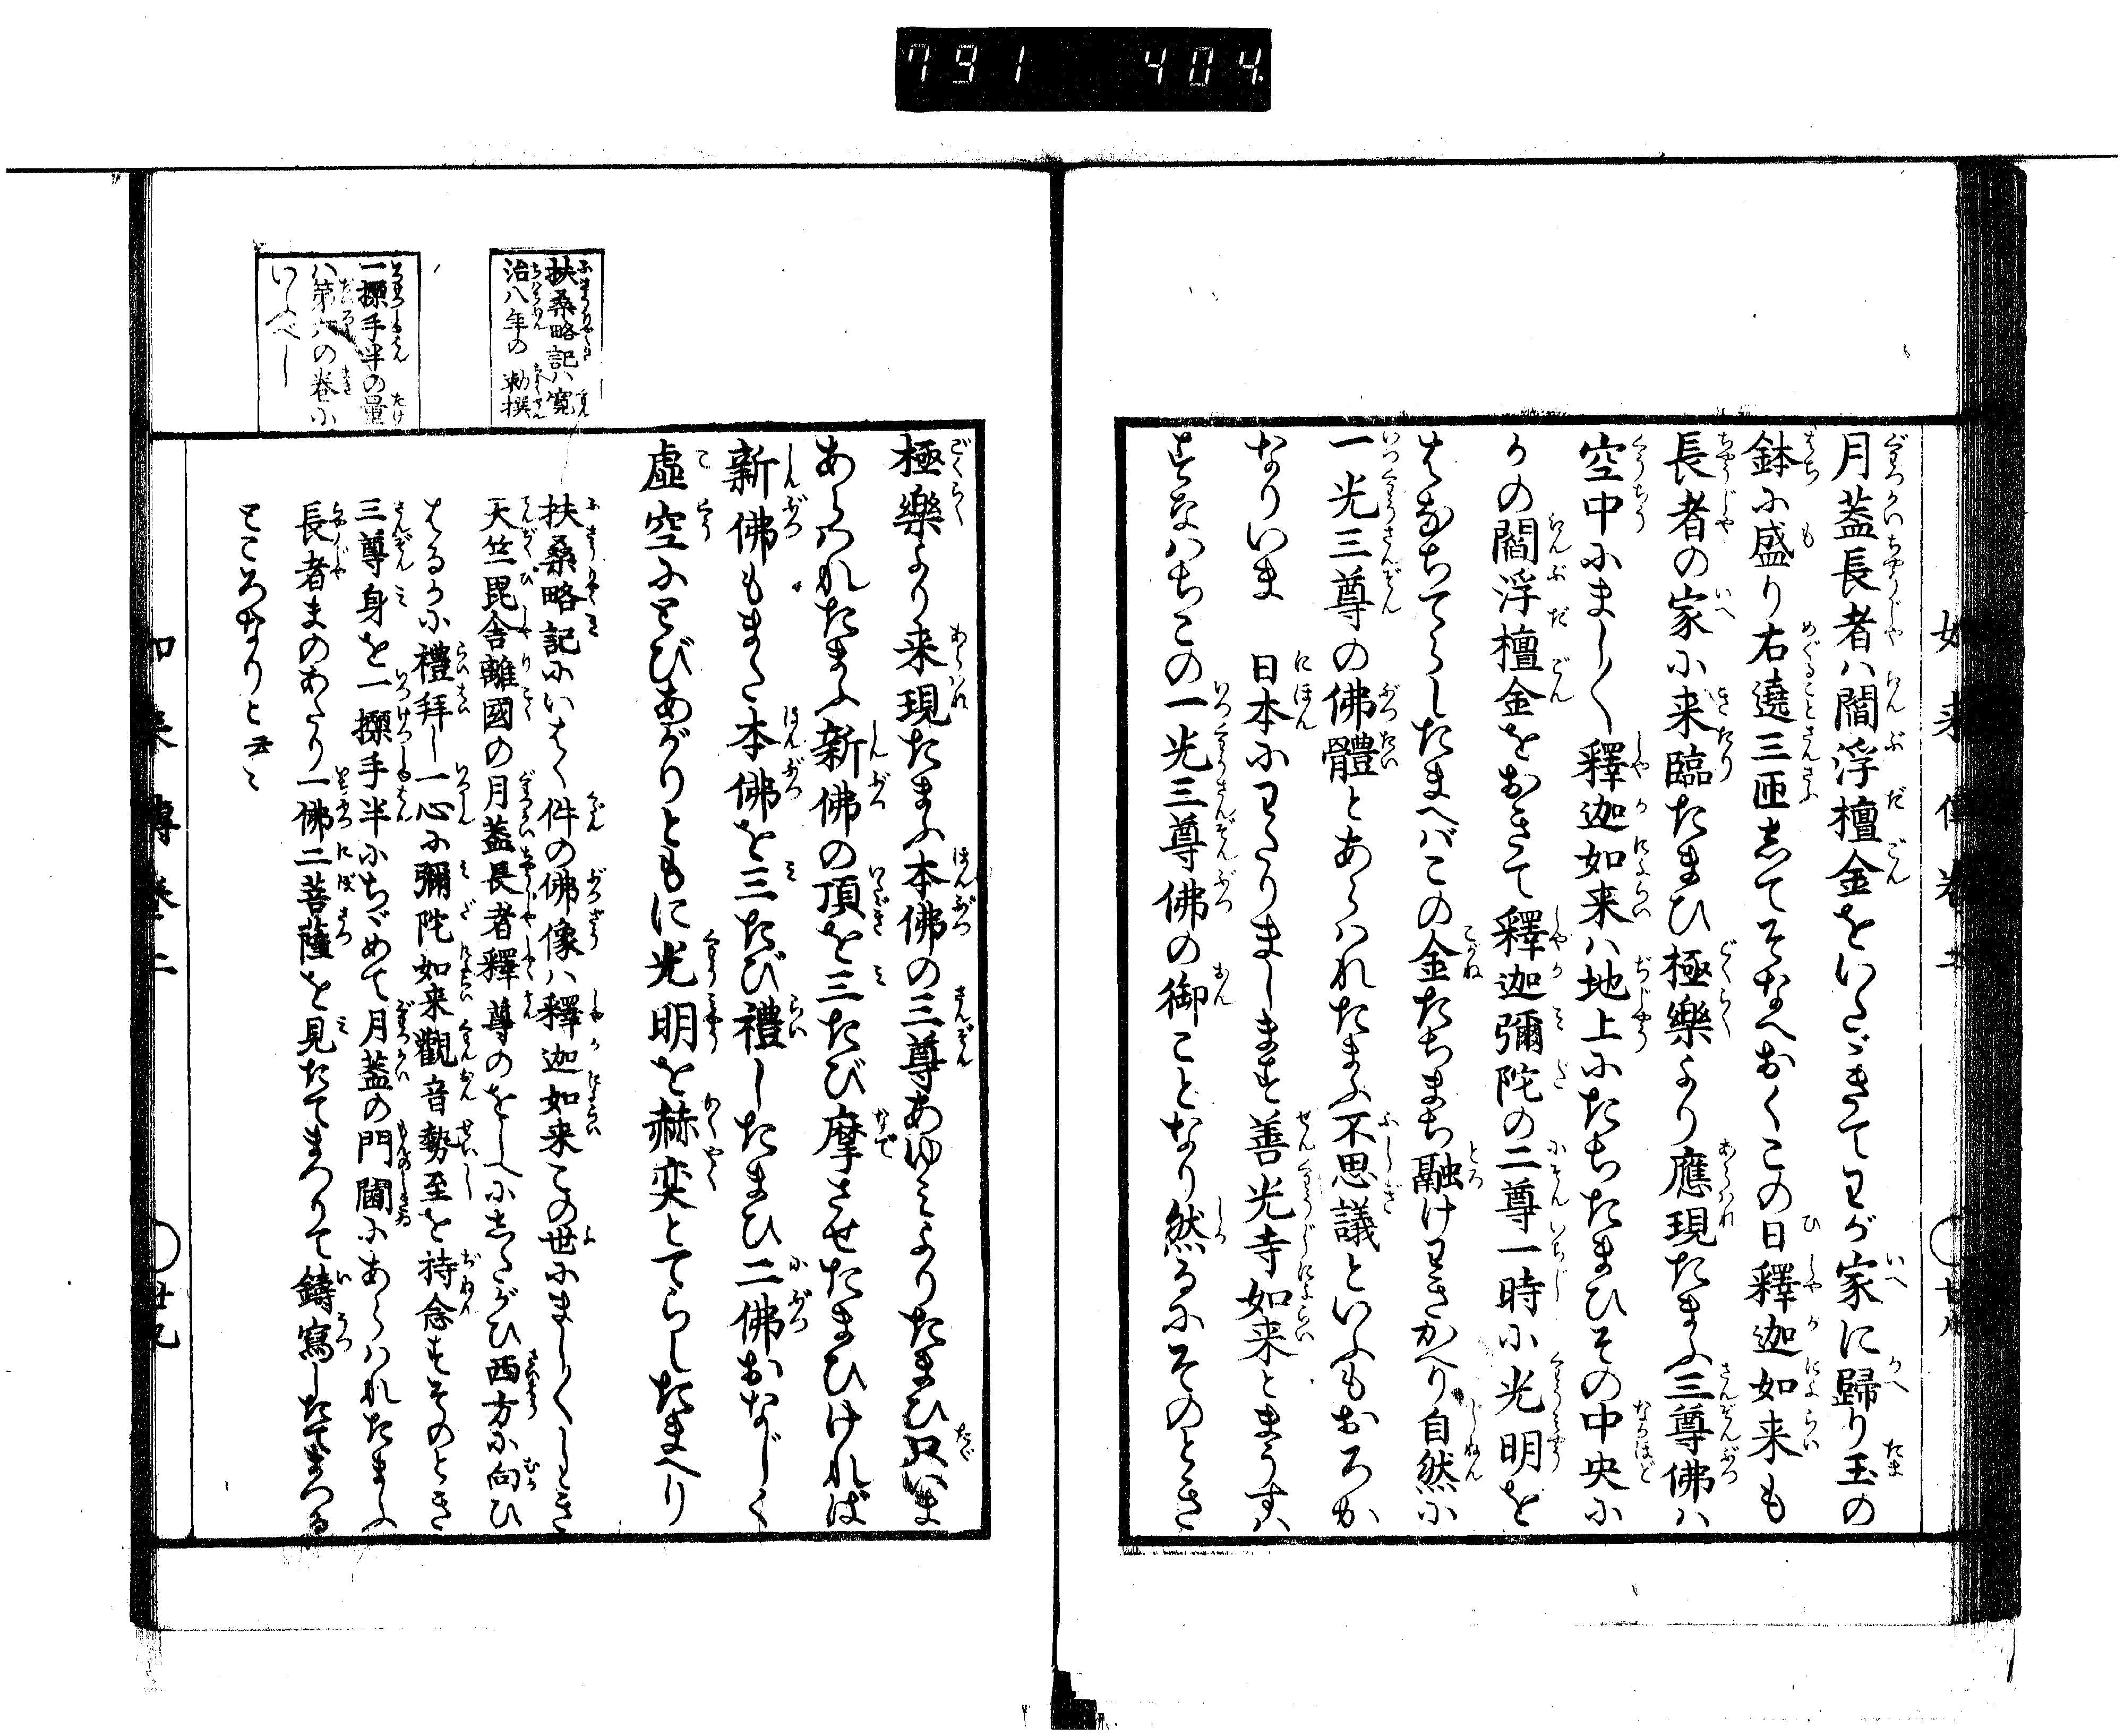 791 404
月蓋長者ハ閻浮檀金をいたゞきてわが家に歸り玉の
鉢に盛り右遶三匝してそなへおくこの日釋迦如来も
長者の家に来臨たまひ極樂より應現たまふ三尊佛ハ
空中にまし〳〵釋迦如来ハ地上にたちたまひその中央に
かの閻浮檀金をおきて釋迦彌陀の二尊一時に光明を
はなちててらしたまへバこの金たちまち融けわきかへり自然に
一光三尊の佛體とあらハれたまふ不思議といふもおろか
なりいま 日本にわたりまします善光寺如来とまうすハ
すなハちこの一光三尊佛の御ことなり然るにそのとき
極樂より来現たまふ本佛の三尊あゆミよりたまひ只いま
あらハれたまふ新佛の頂を三たび摩させたまひけれバ
新佛もまた本佛を三たび禮したまひ二佛おなじく
虚空にとびあがりともに光明を赫奕とてらしたまへり
扶桑略記ハ寛
治八年の勅撰
扶桑略記にいはく件の佛像ハ釋迦如来この世にまし〳〵しとき
天竺毘舎離國の月蓋長者釋尊のをしへにしたがひ西方に向ひ
はるかに禮拜し一心に彌陀如来觀音勢至を持念すそのとき
三尊身を一搩手半にちゞめて月蓋の門閫にあらハれたまふ
長者まのあたり一佛二菩薩を見たてまつりて鑄寫したてまつる
ところなりと云々
一搩手半の量
ハ第六の巻に
いふべし
如来傳巻二